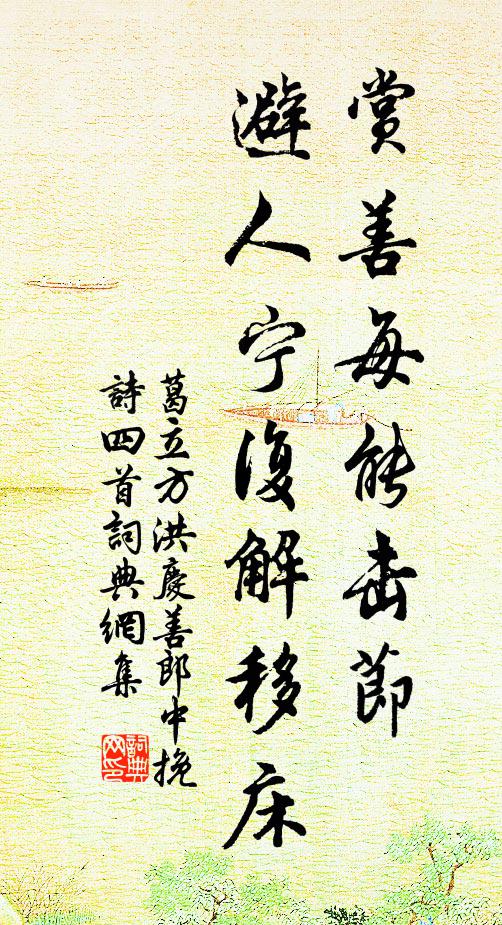 賞善每能击節
避人宁復解移床
葛立方洪慶善郎中挽
詩四首詞典網集
詞典
网印